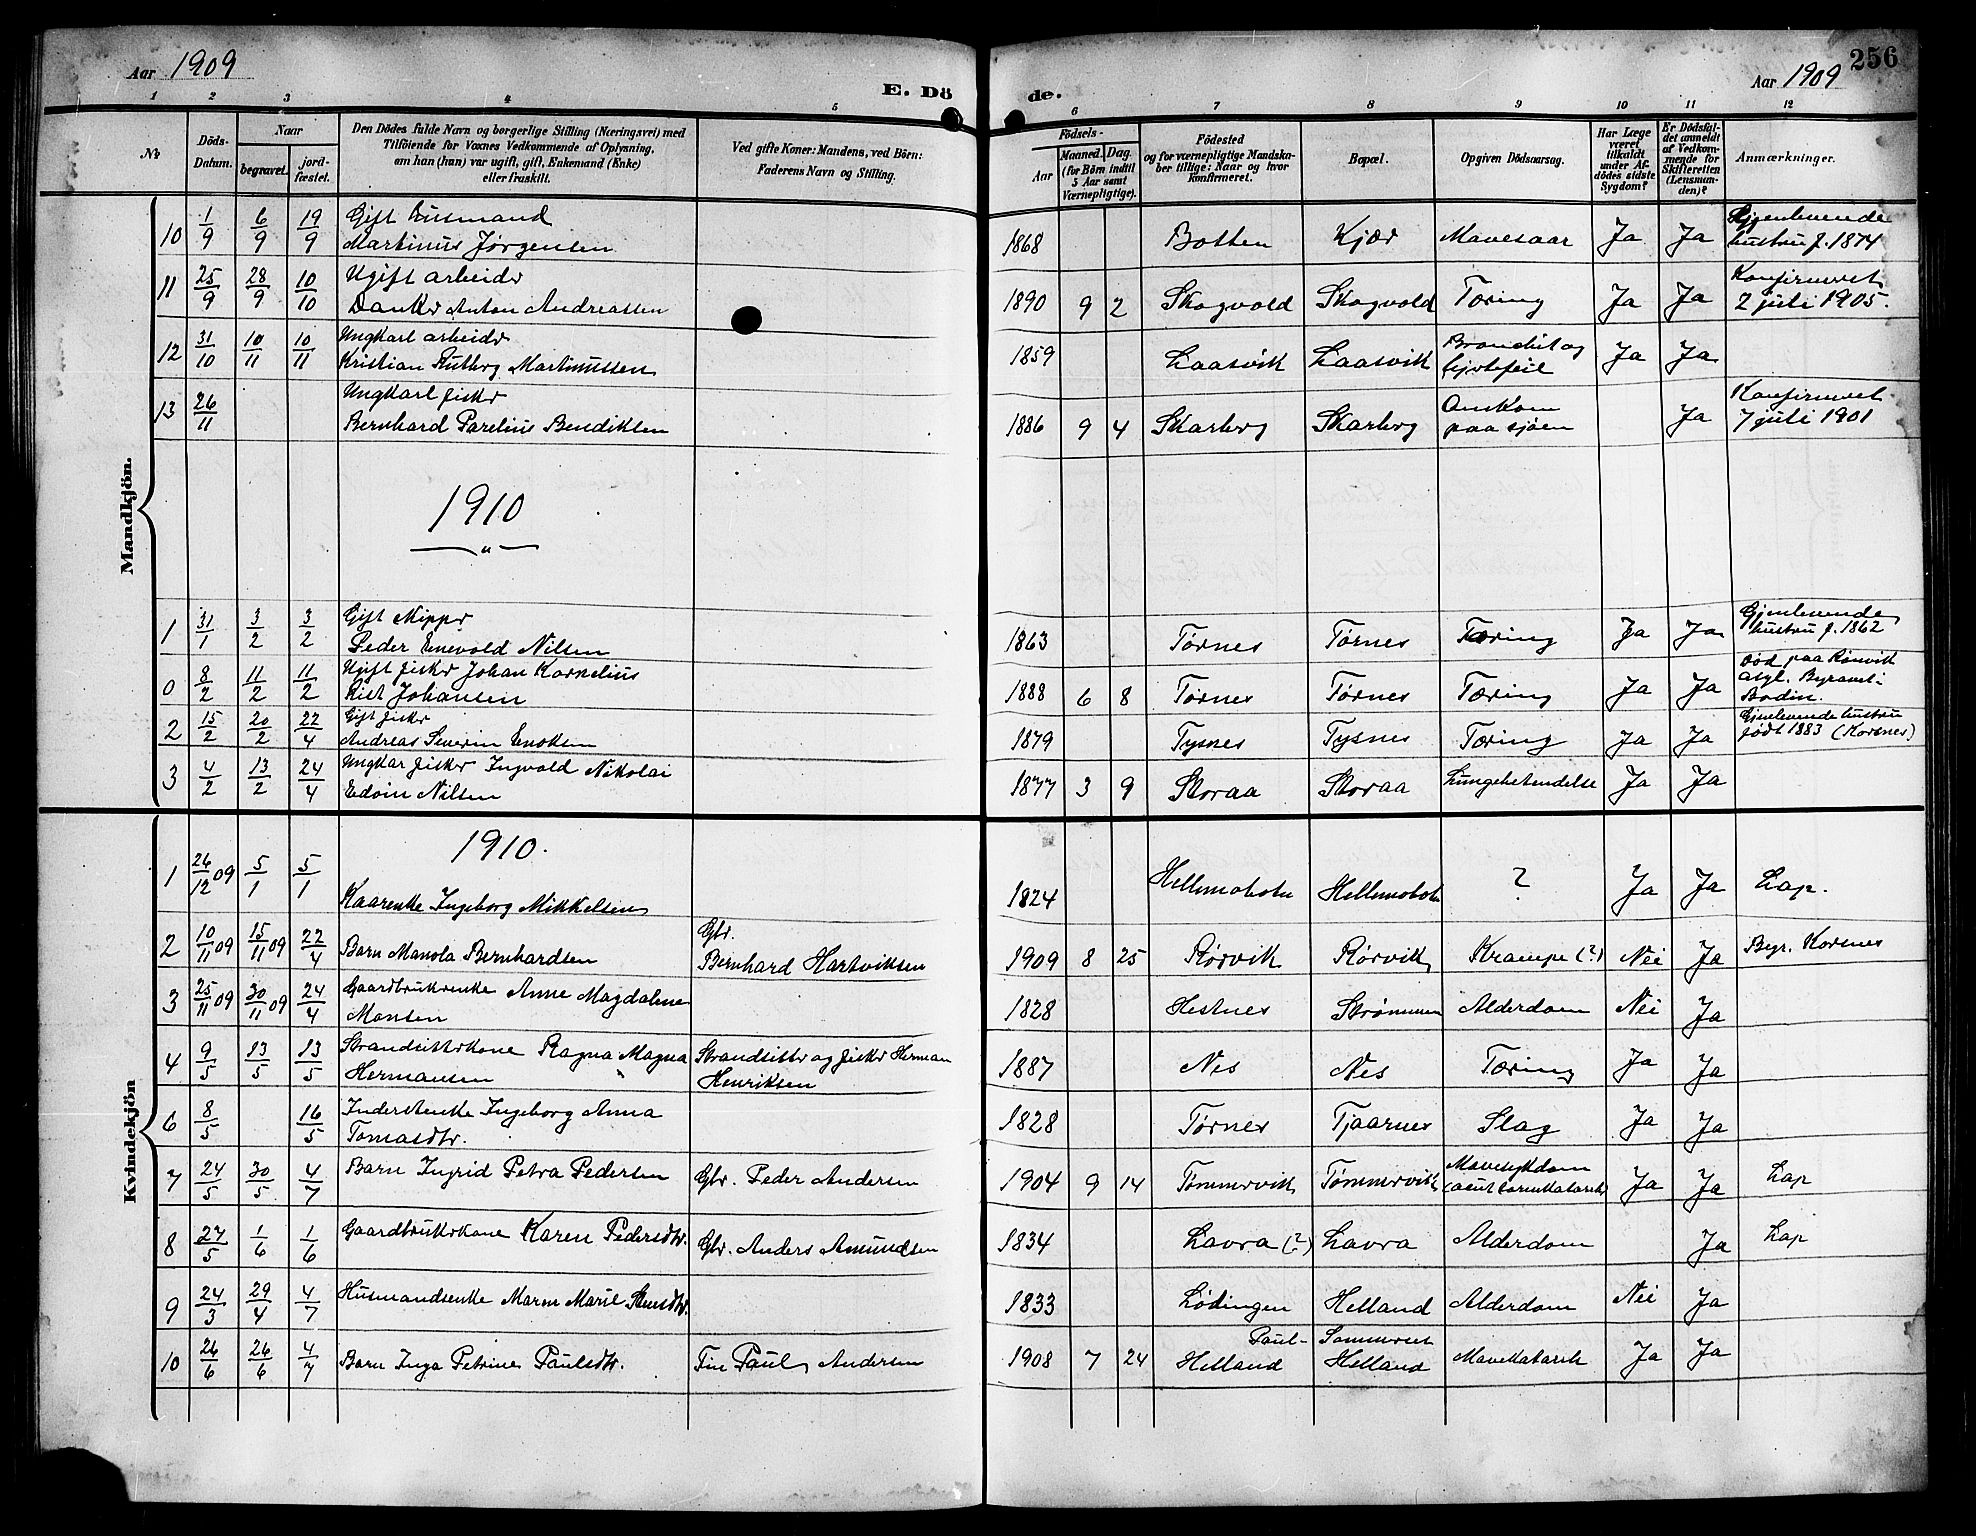 Aar 1909
E. Dö de.
Aar 1909
256
1 2 3 4 5 6 7 8 9 10 11 12
No
Döds-Datum.
Naar
begravet.
jord-fæstet.
Den Dödes fulde Navn og borgerlige Stilling (Næringsvei) med
Tilföiende for Voxnes Vedkommende af Oplysning,
om han (hun) var ugift, gift, Enkemand (Enke)
eller fraskilt.
Ved gifte Koner: Mandens, ved Börn:
Faderens Navn og Stilling.
Födsels-
Aar
Maaned. Dag.
(for Börn indtil
5 Aar samt
Værnepligtige).
Födested
og for værnepligtige Mandska-
ber tillige: Naar og hvor
konfirmeret.
Bopæl.
Opgiven Dödsaarsag.
Har Læge
været
tilkaldt
under Af-
dödes sidste
Sygdom?
Er Dödsfal-
det anmeldt
af Vedkom-
mende for
Skifteretten
(Lensman-
den)?
Anmærkninger.
Mandkjön.
10 1/9 6/9 19/9 Gift husmand Martinus Jørgensen 1868 Botten Kjær Mavesaar Ja Ja Gjenlevende hustru f. 1874
11 25/9 28/9 10/10 Ugift arbeider Danker Anton Andreassen 1890 9 2 Skogvold Skogvold Tæring Ja Ja Konfirmeret 2 juli 1905.
12 31/10 10/11 10/11 Ungkarl arbeider Kristian Martinussen 1859 Laasvik Laasvik Bronchit og hjertefeil Ja Ja
13 26/11 Ungkarl fisker Bernhard Parelius Bendiksen 1886 9 4 Skarberg Skarberg Omkom paa sjøen Ja Konfirmeret 7 juli 1901
1910
1 31/1 3/2 3/2 Gift Peder Enevold Nilsen 1863 Tørnes Tørnes Tæring Ja Ja Gjenlevende hustru f. 1862
0 8/2 11/2 11/2 Ugift fisker Johan Kornelius Kist Johansen 1888 6 8 Tørnes Tørnes Tæring Ja Ja Død paa Rønvik asyl. Begravet i Bodin.
2 15/2 20/2 22/4 Gift fisker Andreas Severin Enoksen 1879 Tysnes Tysnes Tæring Ja Ja Gjenlevende hustru født 1883 (Korsnes)
3 4/2 13/2 24/4 Ungkar fisker Ingvald Nikolai Edvin Nilsen 1877 3 9 Storaa Storaa Lungebetendelse Ja Ja
Kvindekjön
1910.
1 26/12 09 5/1 5/1 Kaarenke Ingeborg Mikkelsen 1824 Hellemobotn Hellemobotn ? Ja Ja Lap.
2 10/11 09 15/11 09 22/4 Barn Manola Bernhardsen Gbr. Bernhard Hartviksen 1909 8 25 Rørvik Rørvik Krampe (?) Nei Ja Begr. Korsnes
3 25/11 09 30/11 09 24/4 Gaardbrukerenke Anne Magdalene Monsen 1828 Hestnes Strømmen Alderdom Nei Ja
4 9/5 13/5 13/5 Strandsitterkone Ragna Magna Hermansen Strandsitter og fisker Herman Henriksen 1887 Nes Nes Tæring Ja Ja
6 8/5 16/5 Inderstenke Ingeborg Anna Tomasdtr. 1828 Tørnes Tjaarnes Slag Ja Ja
7 24/5 30/5 4/7 Barn Ingrid Petra Pedersen Gbr. Peder Andersen 1904 9 14 Tømmervik Tømmervik Mavesykdom (acut tarmkatarrh) Ja Ja Lap
8 27/5 1/6 1/6 Gaardbrukerkone Karen Pedersdtr. Gbr. Anders Amundsen 1834 Lavra (?) Lavra Alderdom Ja Lap
9 24/3 29/4 4/7 Husmandsenke Maren Marie 1833 Lødingen Helland Alderdom Nei Ja
10 26/6 26/6 4/7 Barn Inga Petrine Paulsdtr. Fin Paul Andersen 1908 7 24 Paul-Helland Sommerset Helland Mavekatarrh Ja Ja